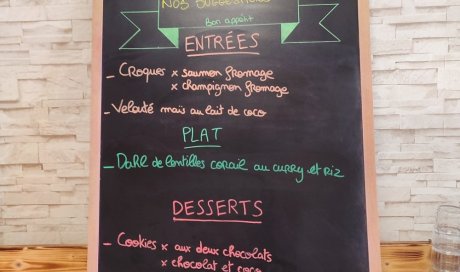 NOS SUGGESTIONS
Bon appétit
ENTRÉES
_ Croques x saumon fromage
x champignon fromage
_ Velouté maïs au lait de coco
PLAT
_ Dahl de lentilles corail au curry et riz
DESSERTS
_ Cookies x aux deux chocolats
x chocolat et coco